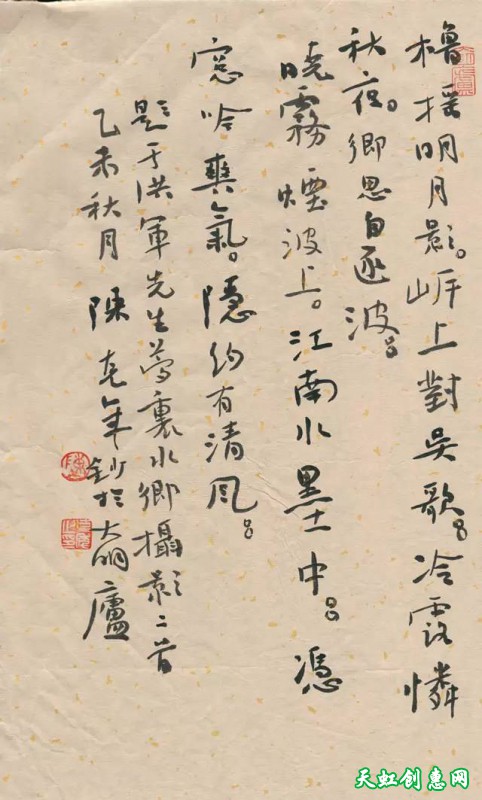 櫓搖明月影。岸上對吳歌。冷露憐
秋夜。鄉思自逐波。
曉霧煙波上。江南水墨中。憑
窓吟爽氣。隱約有清風。
題于洪軍先生夢裏水鄉攝影二首
乙未秋月 陳克年鈔於大廬
天虹创惠网